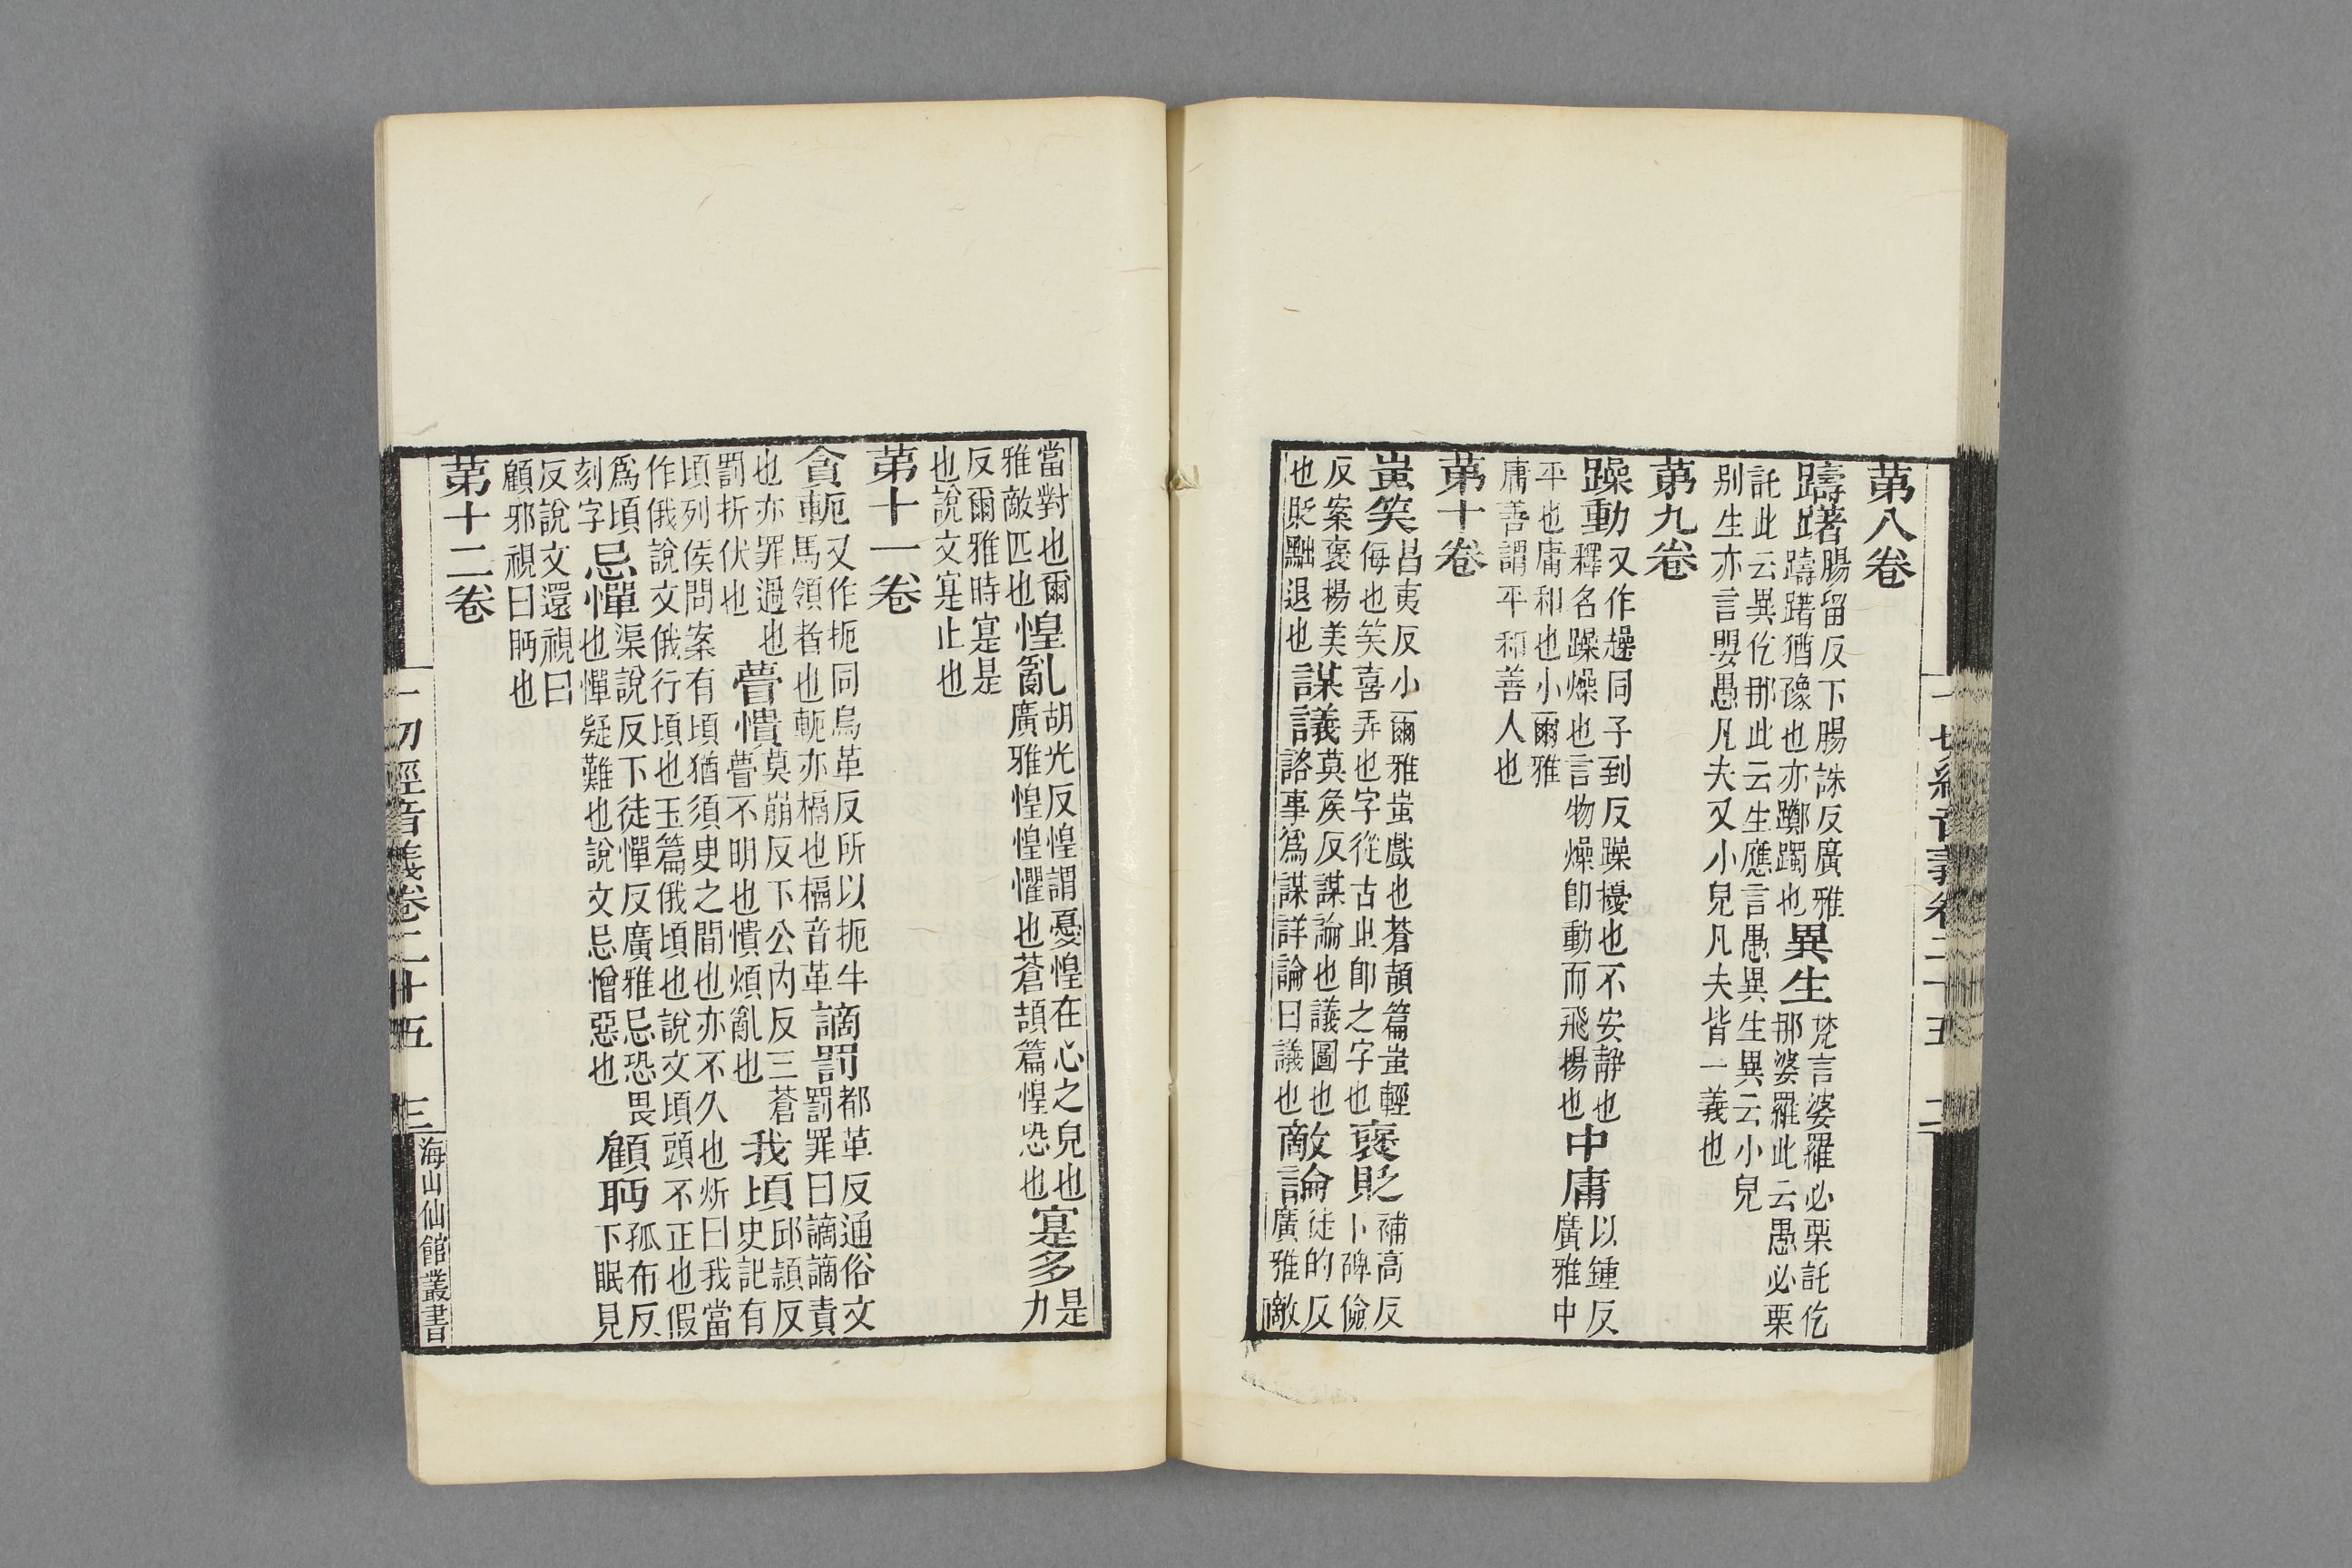 第八卷
躊躇腸留反下腸誅反廣雅
躊躇猶豫也亦躑躅也異生梵言婆羅必栗託仡
那婆羅此云愚必栗
託此云異仡那此云生應言愚異生異云小兒
别生亦言嬰愚凡夫又小兒凡夫皆一義也
第九卷
躁動又作趮同子到反躁擾也不安靜也
釋名躁燥也言物燥卽動而飛揚也中庸以鍾反
廣雅中
平也庸和也小爾雅
庸善謂平和善人也
第十卷
蚩笑昌夷反小爾雅蚩戲也蒼頡篇蚩輕
侮也笑喜弄也字從古㞢卽之字也褒貶補高反
卜碑儉
反案褒揚美
也貶黜退也謀議莫矦反謀論也議圖也
諮事爲謀詳論曰議也敵論徒的反
廣雅敵
當對也爾
雅敵匹也惶亂胡光反惶謂憂惶在心之皃也
廣雅惶惶懼也蒼頡篇惶恐也寔多是
力
反爾雅時寔是
也說文寔止也
第十一卷
貪軛又作扼同烏革反所以扼牛
馬領者也軛亦槅也槅音革謫罰都革反通俗文
罰罪曰謫謫責
也亦罪過也
罰折伏也瞢憒莫崩反下公内反三蒼
瞢不明也憒煩亂也我頃邱穎反
史記有
頃列侯問案有頃猶須臾之間也亦不久也炘曰我當
作俄說文俄行頃也玉篇俄頃也說文頃頭不正也假
爲頃
刻字忌憚渠説反下徒憚反廣雅忌恐畏
也憚疑難也說文忌憎惡也顧眄孤布反
下眠見
反說文還視曰
顧邪視曰眄也
第十二卷
一切經音義卷二十五　三
海山仙館叢書